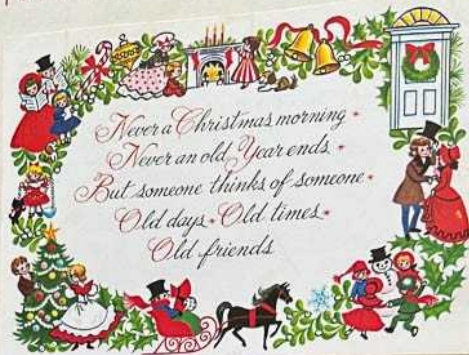 Never a Christmas morning *
Never an old Year ends *
But someone thinks of someone *
Old days * Old times *
Old friends